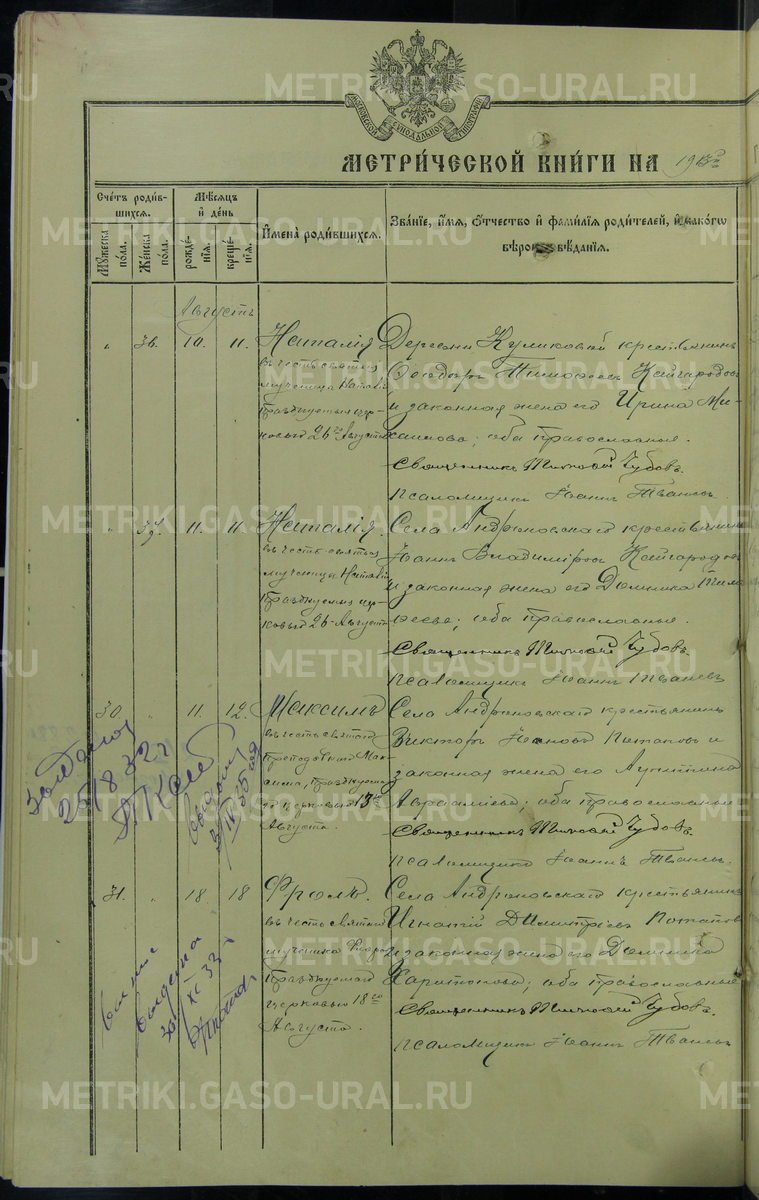 МОСКОВСКОЙ СѴНОДАЛЬНОЙ ТИПОГРАФІИ
МЕТРИ́ЧЕСКОЙ КНИ́ГИ НА 19
Сче́тъ роди́в-
шихся.
Мѣ́сяцъ
и҆ де́нь
Му́жеска
по́ла.
Же́нска
по́ла.
рожде́-
нїя.
креще́-
нїя.
И҆мена̀ роди́вшихся.
Зва́нїе, и҆́мя, ѻ҆́тчество и҆ фами́лїя роди́телей, и҆ како́гѡ
вѣроисповѣ́данїя.
Августъ
" 36. 10. 11. Наталія
въ честь святыя
мученицы Наталіи
празднуемыя цер-
ковью 26го Августа
Деревни Куликовой крестьянинъ
Ѳеодоръ Тимоѳеевъ Кайгородовъ
и законная жена его Ирина Ми-
хаилова; оба православные.
Священникъ Тимоѳей Чубовъ.
Псаломщикъ Іоаннъ
" 37. 11. 11. Наталія.
въ честь святыя
мученицы Наталіи
празднуемыя цер-
ковью 26 Августа
Села Андроновскаго крестьянинъ
Іоаннъ Владиміровъ Кайгородовъ
и законная жена его Домника Тимо-
ѳеева; оба православные.
Священникъ Тимоѳей Чубовъ.
Псаломщикъ Іоаннъ
30 " 11. 12. Максимъ
въ честь святаго
преподобнаго Мак-
сима, празднуема-
го церковью 13го
Августа.
Села Андроновскаго крестьянинъ
Викторъ Іоанновъ Потаповъ и
законная жена его
Авраамиева; оба православные
Священникъ Тимоѳей Чубовъ.
Псаломщикъ Іоаннъ
25/8 32 г
31. " 18 18 Фролъ.
въ честь святаго
мученика Флора
празднуемаго
церковью 18го
Августа.
Села Андроновскаго крестьянинъ
Игнатій Димитріевъ Потаповъ
и законная жена его Домника
Харитонова; оба православные
Священникъ Тимоѳей Чубовъ.
Псаломщикъ Іоаннъ
METRIKI.GASO-URAL.RU